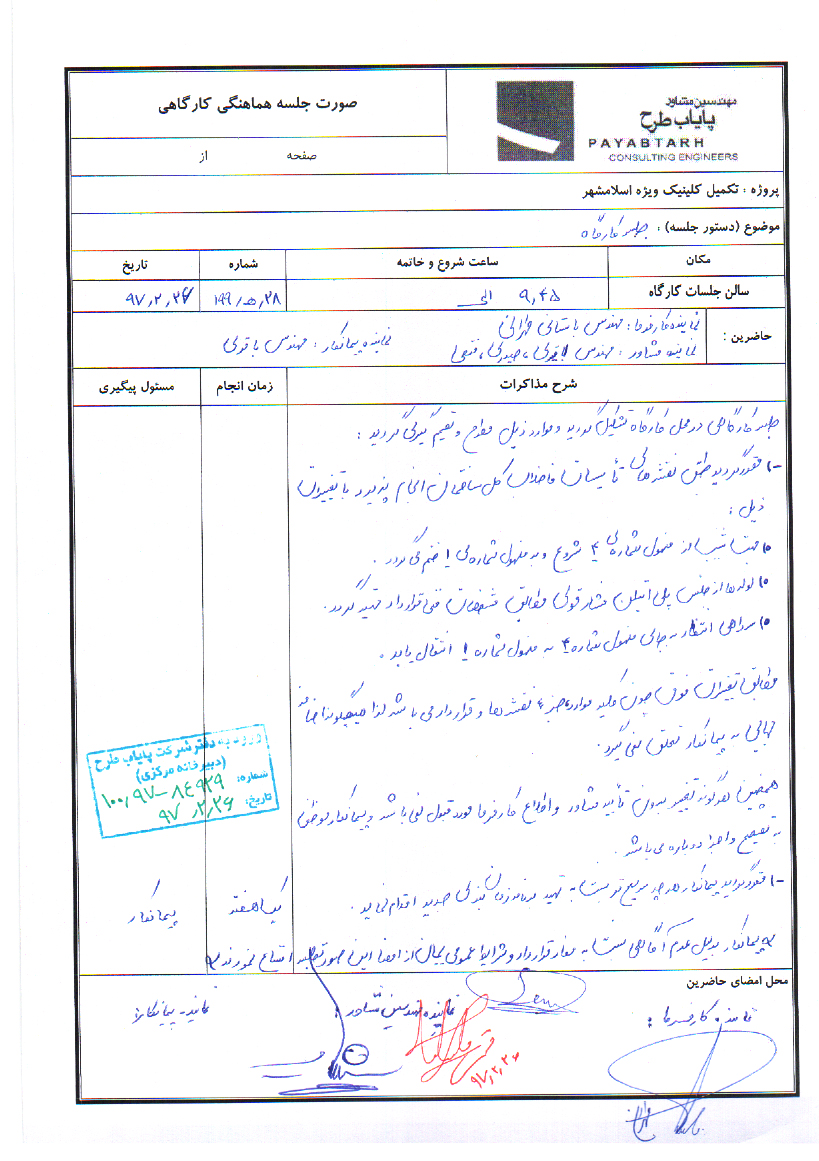 صورت جلسه هماهنگی کارگاهی
صفحه از
مهندسین مشاور
پایاب طرح
PAYABTARH
CONSULTING ENGINEERS
پروژه : تکمیل کلینیک ویژه اسلامشهر
موضوع (دستور جلسه) : جلسه کارگاه
مکان ساعت شروع و خاتمه شماره تاریخ
سالن جلسات کارگاه ۹,۴۵ الی ۱۹۹,ه,۲۸ ۹۷,۲,۲۶
حاضرین :
نماینده کارفرما : مهندس باستانی تهرانی
نماینده مشاور : مهندس باقری، حیدری، فتحی نماینده پیمانکار : مهندس باقری
شرح مذاکرات زمان انجام مسئول پیگیری
جلسه کارگاهی در محل کارگاه تشکیل گردید و موارد ذیل مطرح و تصمیم گیری گردید :
۱- مقرر گردید طبق نقشه های تأسیسات فاضلاب کل ساختمان انجام پذیرد با تغییرات
ذیل :
جهت شیب از منهول شماره ی ۴ شروع و به منهول شماره ی ۱ ختم می گردد .
لوله ها از جنس پلی اتیلن فشار قوی مطابق مشخصات فنی قرارداد تهیه گردد .
سه راهی انتظار به جای منهول شماره ۴ به منهول شماره ۱ انتقال یابد .
مطابق تغییرات فوق چون کلیه موارد جزء نقشه ها و قرارداد می باشد لذا هیچگونه اضافه
بهایی به پیمانکار تعلق نمی گیرد .
همچنین هرگونه تغییر بدون تأیید مشاور و اطلاع کارفرما مورد قبول نمی باشد و پیمانکار موظف
به تصحیح و اجرا دوباره می باشد .
۱- مقرر گردید پیمانکار هر چه سریع تر نسبت به تهیه برنامه زمان بندی جدید اقدام نماید . یک هفته پیمانکار
پیمانکار بدلیل عدم آگاهی نسبت به مفاد قرارداد و شرایط عمومی پیمان از امضا این صورتجلسه امتناع نمودند
ورود به دفتر شرکت پایاب طرح
(دبیرخانه مرکزی)
شماره: ۱۰۰,۹۷-۸۴۹۲۹
تاریخ: ۹۷,۲,۲۶
محل امضای حاضرین
نماینده کارفرما : نماینده مهندسین مشاور : نماینده پیمانکار
۹۷,۲,۲۶